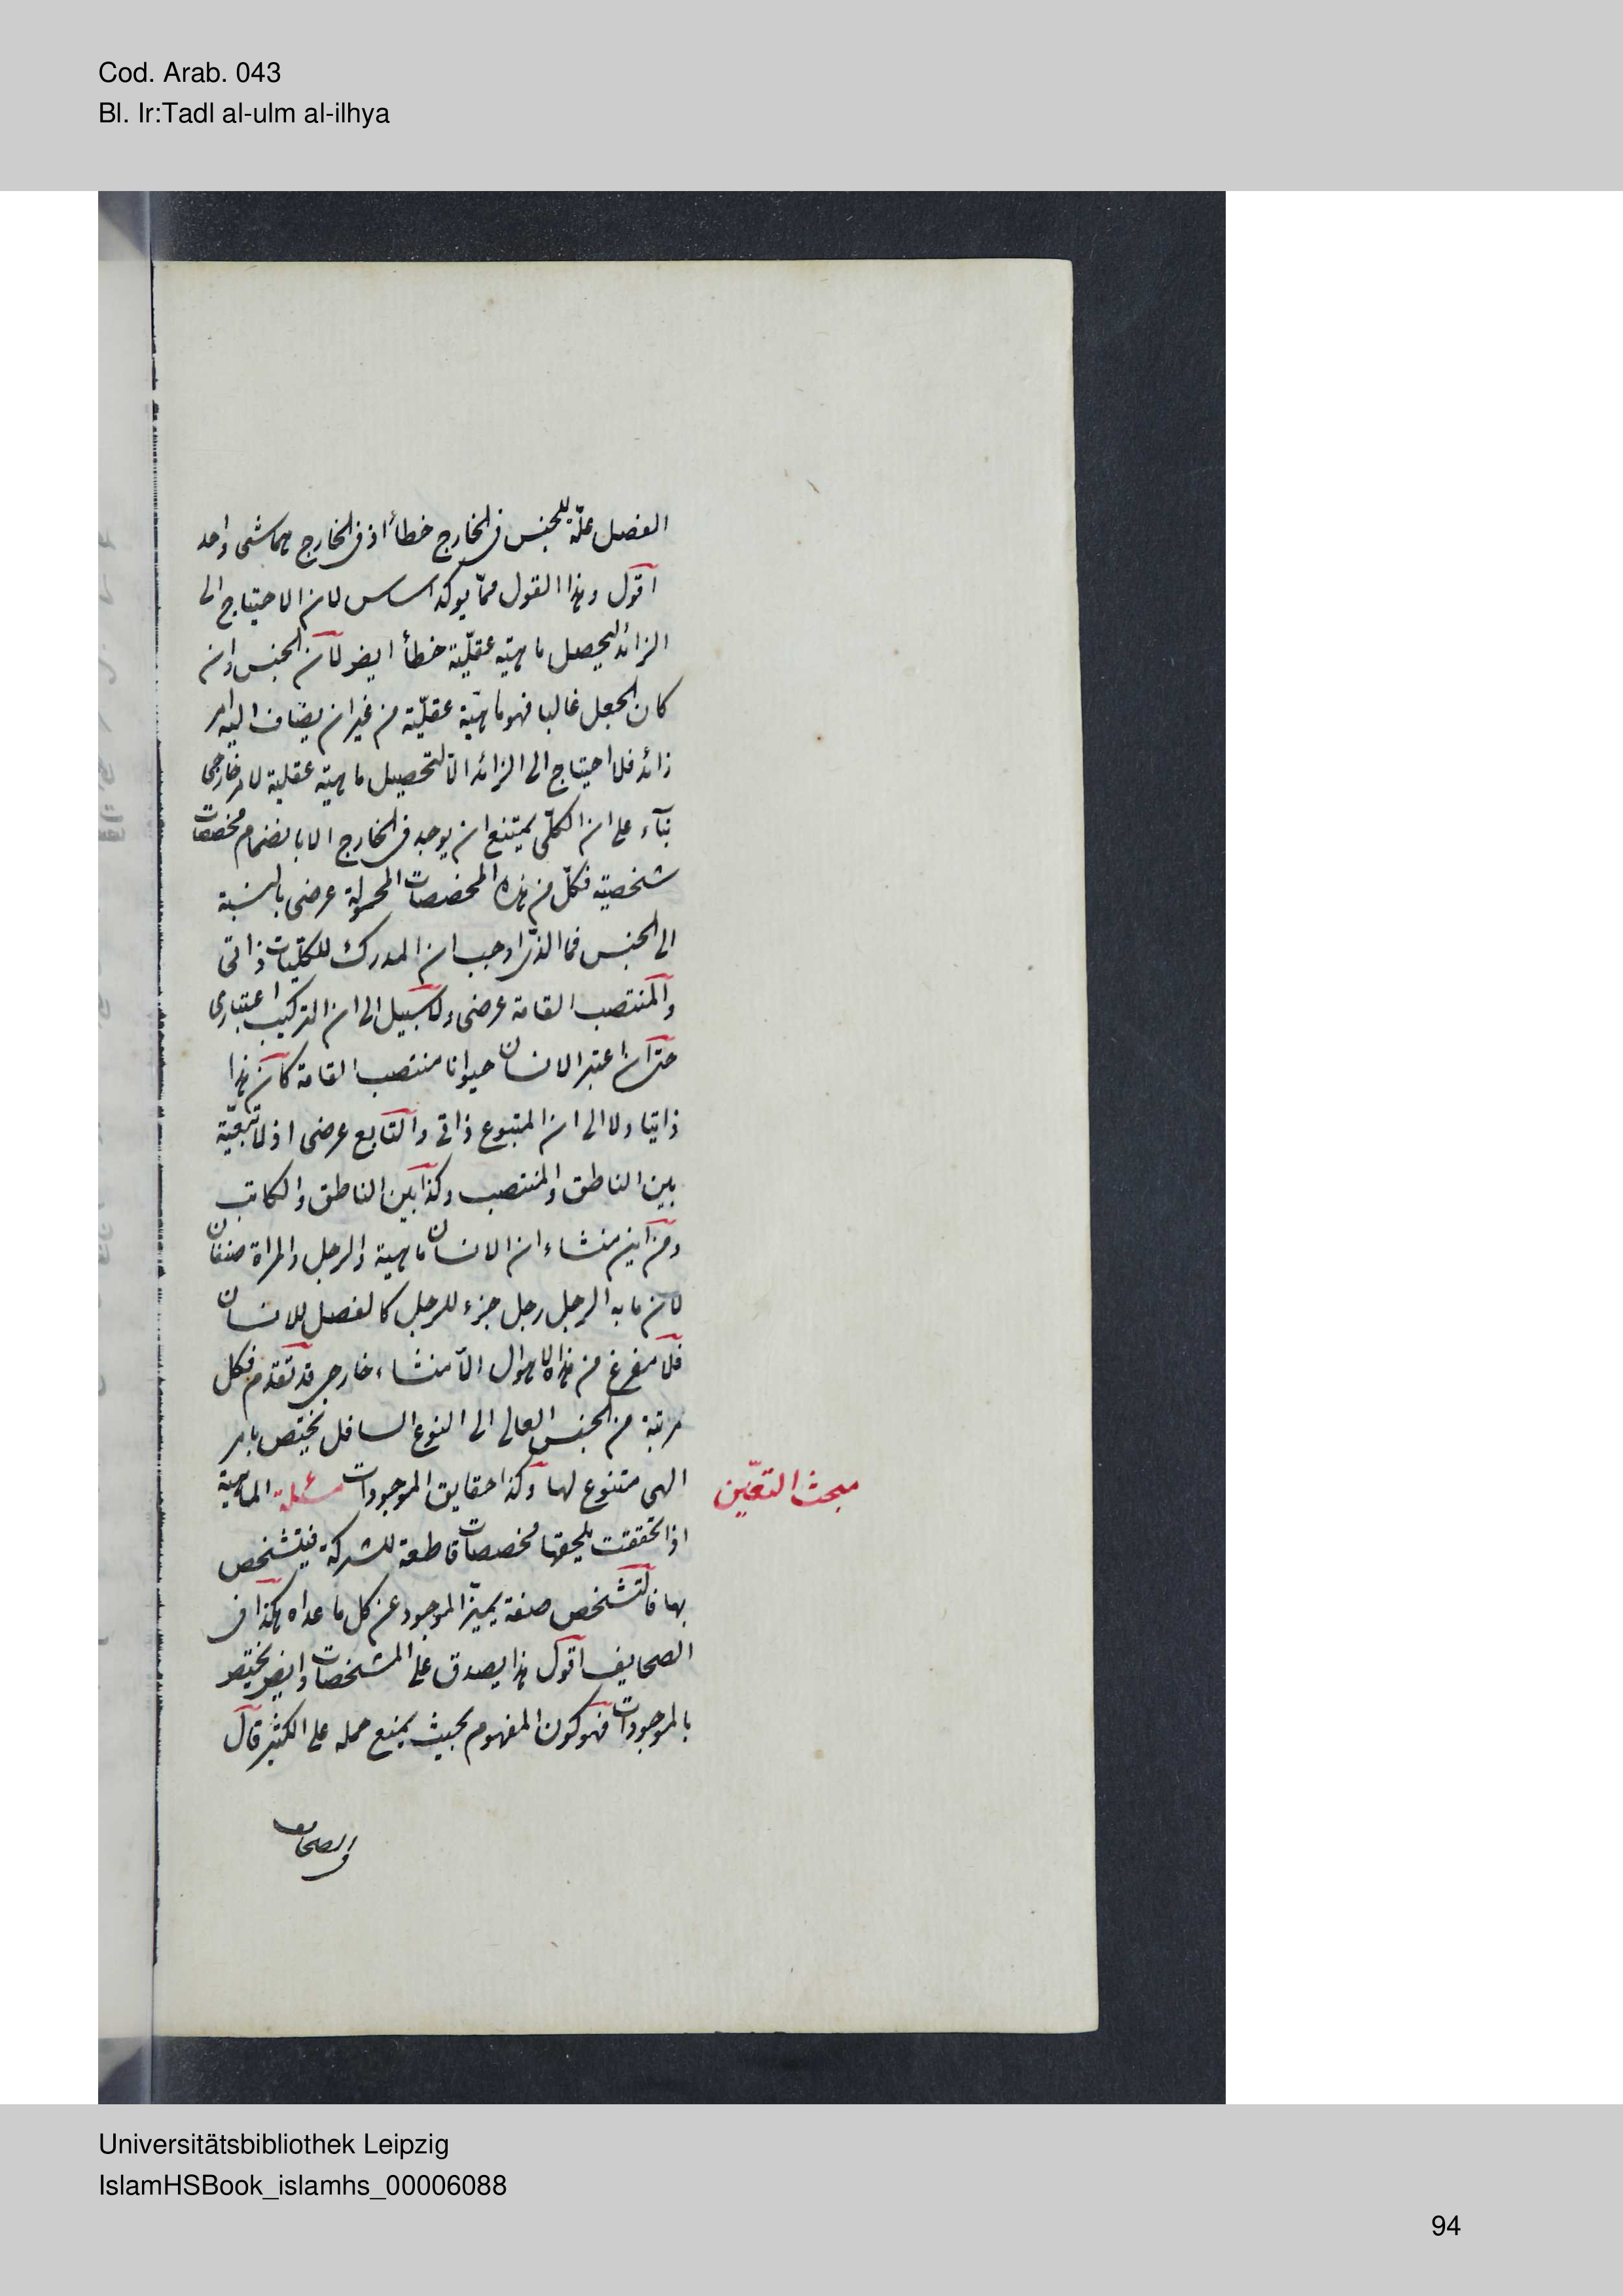 Cod. Arab. 043
Bl. Ir:Tadl al-ulm al-ilhya
الفصل علّة للجنس فى الخارج خطأ اذ فى الخارج هما شى واحد
اقول وهذا القول ممّا يوكد اساس لان الاحتياج الى
الزائد ليحصل ماهية عقليّة خطأ ايضا لان الجنس وان
كان الجعل غالبا فهو ماهيّة عقليّة من غير ان يضاف اليه امر
زائد فلا احتياج الى الزائد الا لتحصيل ماهية عقلية لامر خارجى
بناء على ان الكلّى يمتنع ان يوجد فى الخارج الا بانضمام مخصصات
شخصية فكلّ من هذه المخصصات المحمولة عرضى بالنسبة
الى الجنس فما الذى اوجب ان المدرك للكليّات ذاتى
والمنتصب القامة عرضى ولا سبيل الى ان التركيب اعتبارى
حتى ان اعتبر الانسان حيوانا منتصب القامة كان هذا
ذاتيا ولا الى ان المتبوع ذاتى والتابع عرضى اذ لا تبعيّة
بين الناطق والمنتصب وكذا بين الناطق والكاتب
ومن اين منشاء ان الانسان ماهية والرجل والمراة صنفان
لان ما به الرجل رجل جزء للرجل كالفصل للانسان
فلا مفرغ من هذه الاهوال الا منشاء خارجى قد تقدم فكل
مرتبة من الجنس العالى الى النوع السافل يختص بامر
الهى متنوع لها وكذا حقايق الموجودات مسئلة الماهية
مبحث التعيّن
اذا تحققت يلحقها مخصصات قاطعة للشركة فيتشخص
بها فالتشخص صفة يميّز الموجود عن كل ما عداه هكذا فى
الصحايف اقول هذا يصدق على المشخصات وايضا يختص
بالموجودات فهو كون المفهوم بحيث يمنع حمله على الكثير قال
فى الصحايف
Universitätsbibliothek Leipzig
IslamHSBook_islamhs_00006088
94